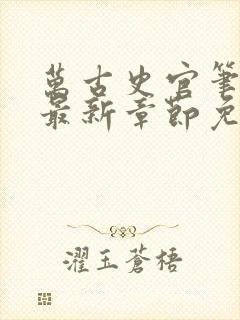 萬古史官筆
最新章節免
濯玉蒼梧